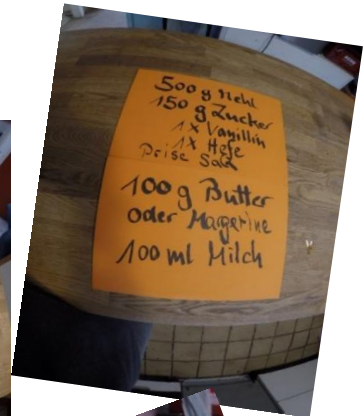 500 g Mehl
150 g Zucker
1x Vanillin
1x Hefe
Prise Salz
100 g Butter
oder Magerine
100 ml Milch